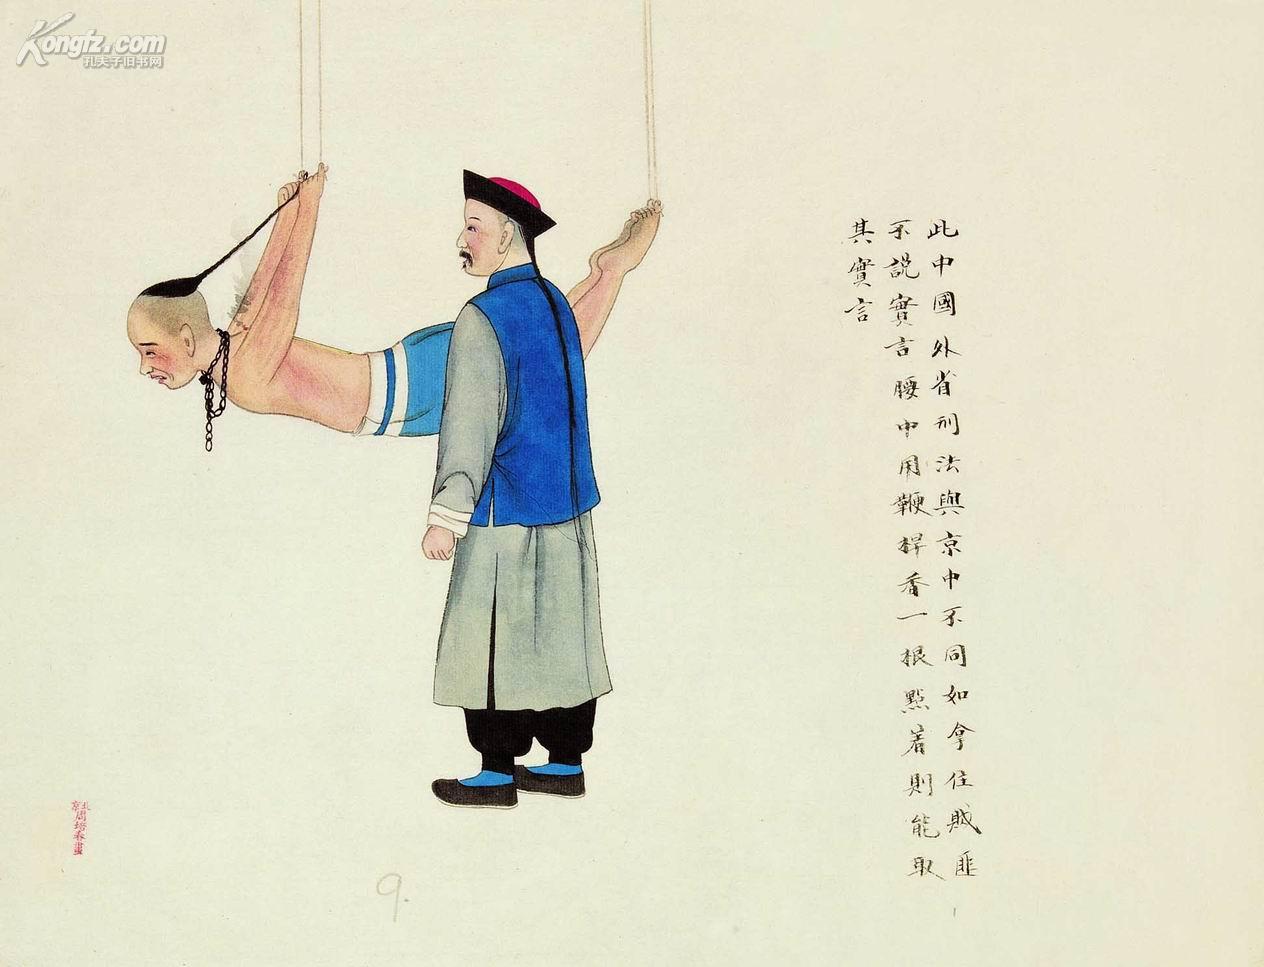 Kongfz.com
孔夫子旧书网
此中國外省刑法與京中不同如拿住賊匪
不說實言腰中用鞭桿香一根點着則能取
其實言
北京
周培春畫
9.